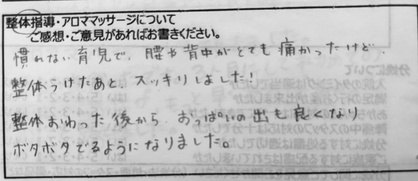 整体指導・アロママッサージについて
ご感想・ご意見があればお書きください。
慣れない育児で、腰や背中がとても痛かったけど、
整体うけたあと、スッキリしました!
整体おわった後から、おっぱいの出も良くなり
ボタボタでるようになりました。